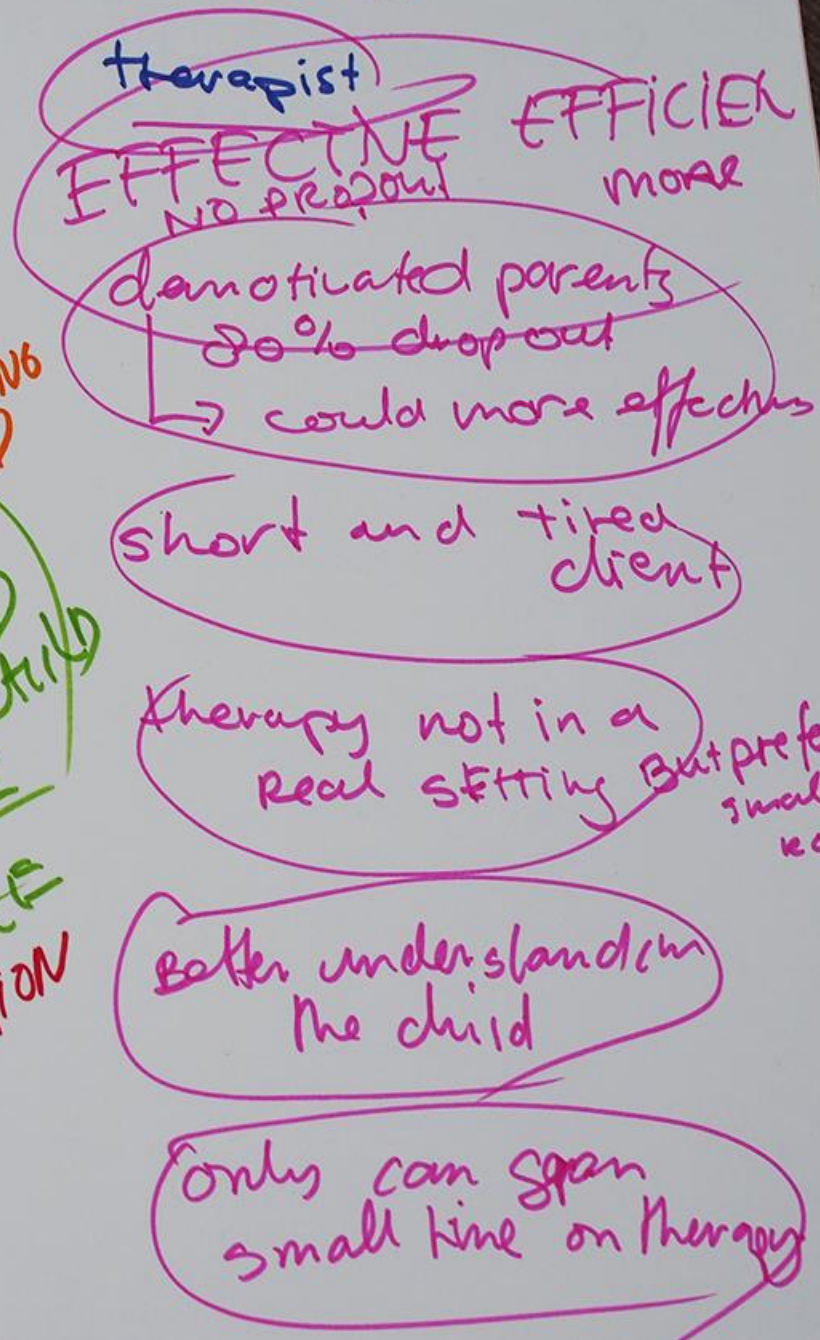 therapist
EFFECTIVE EFFICIEN
NO DROPOUT more
demotivated parents
80% dropout
→ could more effective
short and tired
client
therapy not in a
Real setting But prefe
smal
Better understandin
the child
only can span
small time on therapy
CHILD
ION